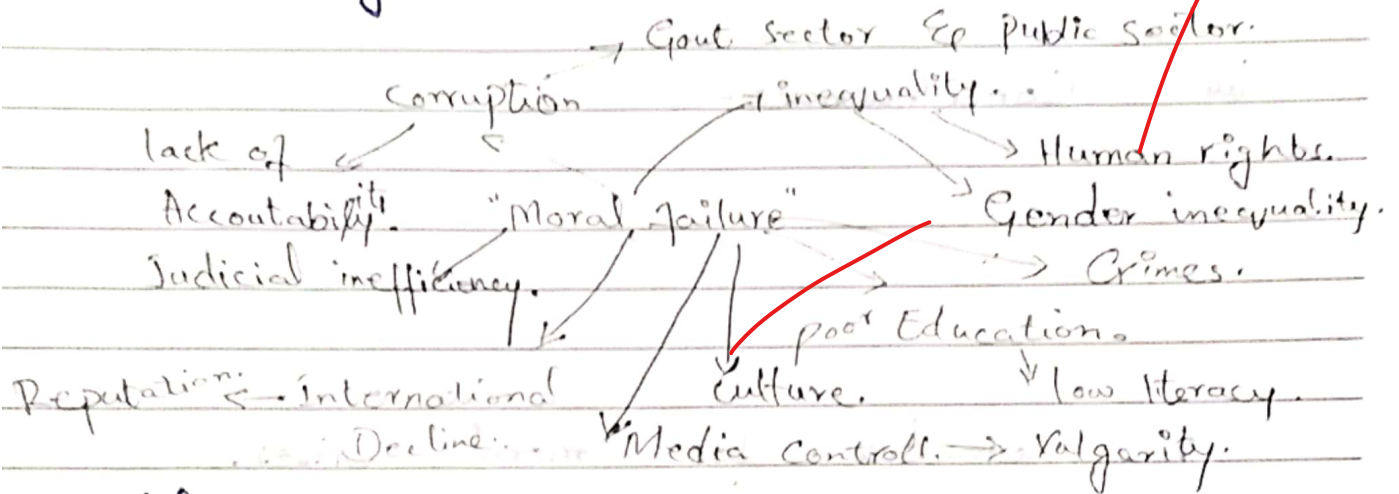 Govt sector & public sector.
corruption inequality..
lack of Human rights.
Accoutability. "Moral failure" Gender inequality.
Judicial inefficiency. Crimes.
poor Education.
Reputation. International Culture. low literacy.
Decline.. Media Controll. Valgarity.